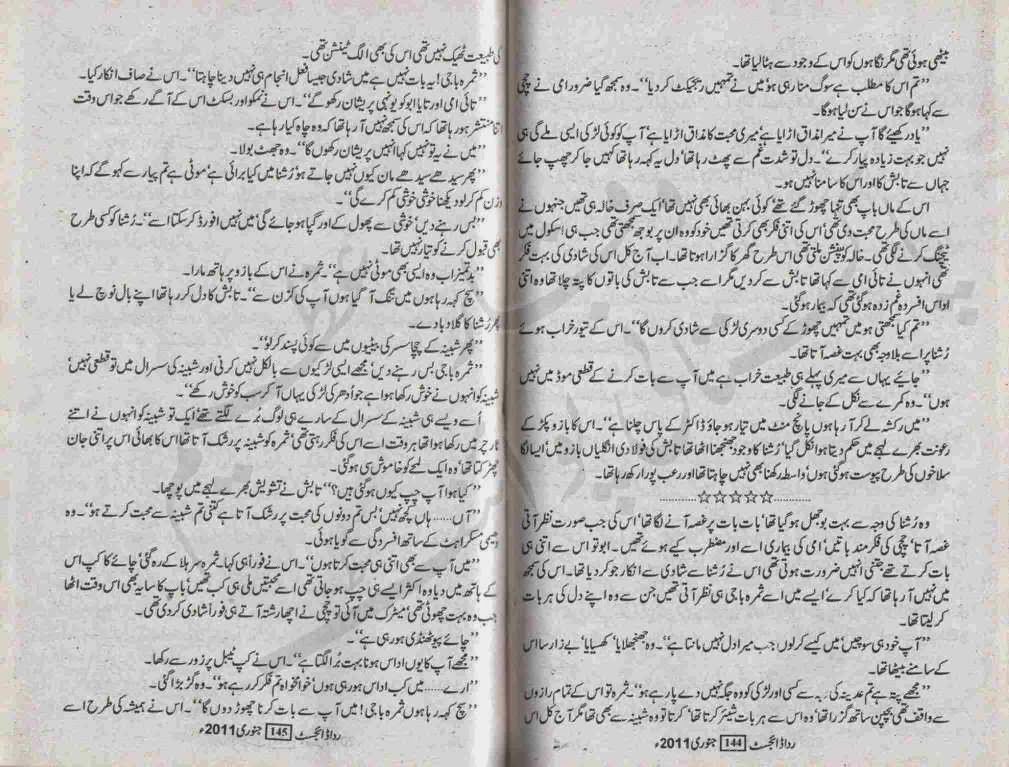 بیٹھی ہوئی تھی مگر نگاہوں کو اس کے وجود سے ہٹا لیا تھا۔
”تم اس کا مطلب ہے سوگ منا رہی ہو، میں نے تمہیں ریجیکٹ کر دیا“۔ وہ سمجھ گیا ضرور امی نے چچی
سے کہا ہوگا جو اس نے سن لیا ہوگا۔
”یاد رکھیئے گا آپ نے میرا مذاق اڑایا ہے، میری محبت کا مذاق اڑایا ہے، آپ کو کوئی لڑکی ایسی ملے گی ہی
نہیں جو بہت زیادہ پیار کرے“۔ دل تو شدت غم سے پھٹ رہا تھا، دل یہ کہہ رہا تھا کہیں جا کر چھپ جائے
جہاں سے تابش کا اور اس کا سامنا نہیں ہو۔
اس کے ماں باپ بھی تنہا چھوڑ گئے تھے، کوئی بہن بھائی بھی نہیں تھا، ایک صرف خالہ ہی تھیں جنہوں نے
اسے ماں کی طرح محبت دی تھی، اس کی اتنی فکر بھی کرتی تھیں، خود کو وہ ان پر بوجھ سمجھتی تھی جب ہی اسکول میں
ٹیچنگ کرنے لگی تھی۔ خالہ کو پینشن ملتی تھی اس طرح گھر کا گزارا ہوتا تھا۔ اب آج کل اس کی شادی کی بہت فکر
تھی انہوں نے تائی امی سے کہا تھا تابش سے کر دیں مگر اسے جب سے تابش کی باتوں کا پتہ چلا تھا وہ اتنی
اداس افسردہ غم زدہ ہوگئی تھی کہ بیمار ہوگئی۔
”تم کیا سمجھتی ہو میں تمہیں چھوڑ کے کسی دوسری لڑکی سے شادی کروں گا“۔ اس کے تیور خراب ہوئے
رُشنا پر اسے بلاوجہ بھی بہت غصہ آتا تھا۔
”جائیے یہاں سے میری پہلے ہی طبیعت خراب ہے میں آپ سے بات کرنے کے قطعی موڈ میں نہیں
ہوں“۔ وہ کمرے سے نکل کے جانے لگی۔
”میں رکشہ لے کر آ رہا ہوں پانچ منٹ میں تیار ہو جاؤ ڈاکٹر کے پاس چلنا ہے“۔ اس کا بازو پکڑ کے
رعونت بھرے لہجے میں حکم دیتا ہوا نکل گیا، رُشنا کا وجود جھنجھنا اٹھا تھا تابش کی فولادی انگلیاں بازو میں ایسا لگا
سلاخوں کی طرح پیوست ہوگئی ہوں، واسطہ رکھنا بھی نہیں چاہتا تھا اور رعب پورا رکھ رہا تھا۔
............☆☆☆☆☆............
وہ رُشنا کی وجہ سے بہت بوجھل ہو گیا تھا، بات بات پر غصہ آنے لگا تھا، اس کی جب صورت نظر آتی
غصہ آتا، چچی کی فکر مند باتیں، امی کی بیماری اسے اور مضطرب کیے ہوئے تھیں۔ ابو تو اس سے اتنی ہی
بات کرتے تھے جتنی انہیں ضرورت ہوتی تھی اس نے رُشنا سے شادی سے انکار جو کر دیا تھا۔ اس کی سمجھ
میں نہیں آ رہا تھا کہ کیا کرے، ایسے میں اسے ثمرہ باجی ہی نظر آتی تھیں جن سے وہ اپنے دل کی ہر بات
کر لیتا تھا۔
”آپ خود ہی سوچیں، میں کیسے کر لوں، جب میرا دل نہیں مانتا ہے“۔ وہ جھنجھلایا، کھسیایا، بے زار سا اس
کے سامنے بیٹھا تھا۔
”مجھے پتہ ہے تم مدینہ کی وجہ سے کسی اور لڑکی کو وہ جگہ نہیں دے پا رہے ہو“۔ ثمرہ تو اس کے تمام رازوں
سے واقف تھی، بچپن ساتھ گزرا تھا، وہ اس سے ہر بات شیئر کرتا تھا، کرتا تو وہ شبینہ سے بھی تھا مگر آج کل اس
رداڈائجسٹ 144 جنوری 2011ء
کی طبیعت ٹھیک نہیں تھی اس کی بھی الگ ٹینشن تھی۔
”ثمرہ باجی! یہ بات نہیں ہے میں شادی جیسا فعل انجام ہی نہیں دینا چاہتا“۔ اس نے صاف انکار کیا۔
”تائی امی اور تایا ابو کو یونہی پریشان رکھو گے“۔ اس نے نمکو اور بسکٹ اس کے آگے رکھے جو اس وقت
اتنا منتشر ہو رہا تھا کہ اس کی سمجھ نہیں آ رہا تھا کہ وہ چاہ کیا رہا ہے۔
”میں نے یہ تو نہیں کہا انہیں پریشان رکھوں گا“۔ وہ جھٹ بولا۔
”پھر سیدھے سیدھے مان کیوں نہیں جاتے ہو، رُشنا میں کیا برائی ہے، موٹی ہے تم پیار سے کہو گے کہ اپنا
وزن کم کر لو دیکھنا خوشی خوشی کم کرے گی“۔
”بس رہنے دیں، خوشی سے پھول کے اور گپا ہو جائے گی، میں نہیں افورڈ کر سکتا اسے“۔ رُشنا کو کسی طرح
بھی قبول کرنے کو تیار نہیں تھا۔
”بدتمیز اب وہ ایسی بھی موٹی نہیں ہے“۔ ثمرہ نے اس کے بازو پر ہاتھ مارا۔
”سچ کہہ رہا ہوں میں تنگ آ گیا ہوں آپ کی کزن سے“۔ تابش کا دل کر رہا تھا اپنے بال نوچ لے یا
پھر رُشنا کا گلا دبا دے۔
”پھر شبینہ کے چچا سسر کی بیٹیوں میں سے کوئی پسند کر لو“۔
”ثمرہ باجی بس رہنے دیں، مجھے ایسی لڑکیوں سے بالکل نہیں کرنی اور شبینہ کی سسرال میں تو قطعی نہیں،
شبینہ کو انہوں نے خوش رکھا ہوا ہے جو اُدھر کی لڑکی یہاں آ کر سب کو خوش رکھے“۔
اُسے ویسے ہی شبینہ کے سسرال کے سارے ہی لوگ بُرے لگتے تھے، ایک تو شبینہ کو انہوں نے اتنے
ٹارچر میں رکھا ہوا تھا ہر وقت اسے اس کی فکر رہتی تھی، ثمرہ کو شبینہ پر رشک آتا تھا اس کا بھائی اس پر اتنی جان
چھڑکتا تھا، وہ ایک لمحے کو خاموش سی ہوگئی۔
”کیا ہوا آپ چپ کیوں ہوگئی ہیں؟“ تابش نے تشویش بھرے لہجے میں پوچھا۔
”آں...... ہاں کچھ نہیں، بس تم دونوں کی محبت پر رشک آتا ہے کتنی تم شبینہ سے محبت کرتے ہو“۔ وہ
دھیمی مسکراہٹ کے ساتھ افسردگی سے گویا ہوئی۔
”میں آپ سے بھی اتنی ہی محبت کرتا ہوں“۔ اس نے فوراً ہی کہا، ثمرہ سر ہلا کے رہ گئی، چائے کا کپ اس
کے ہاتھ میں دیا وہ اکثر ایسے ہی چپ ہو جاتی تھی اسے محبتیں ملی ہی کب تھیں، باپ کا سایہ بھی اس وقت اٹھا
جب وہ بہت چھوٹی تھی، میٹرک میں آئی تو چچی نے اچھا رشتہ آتے ہی فوراً شادی کر دی تھی۔
”چائے پیو ٹھنڈی ہو رہی ہے“۔
”مجھے آپ کا یوں اداس ہونا بہت بُرا لگتا ہے“۔ اس نے کپ ٹیبل پر زور سے رکھا۔
”ارے...... میں کب اداس ہو رہی ہوں، خوامخواہ تم فکر کر رہے ہو“۔ وہ گڑبڑا گئی۔
”سچ کہہ رہا ہوں ثمرہ باجی! میں آپ سے بات کرنا چھوڑ دوں گا“۔ اس نے ہمیشہ کی طرح اسے
رداڈائجسٹ 145 جنوری 2011ء